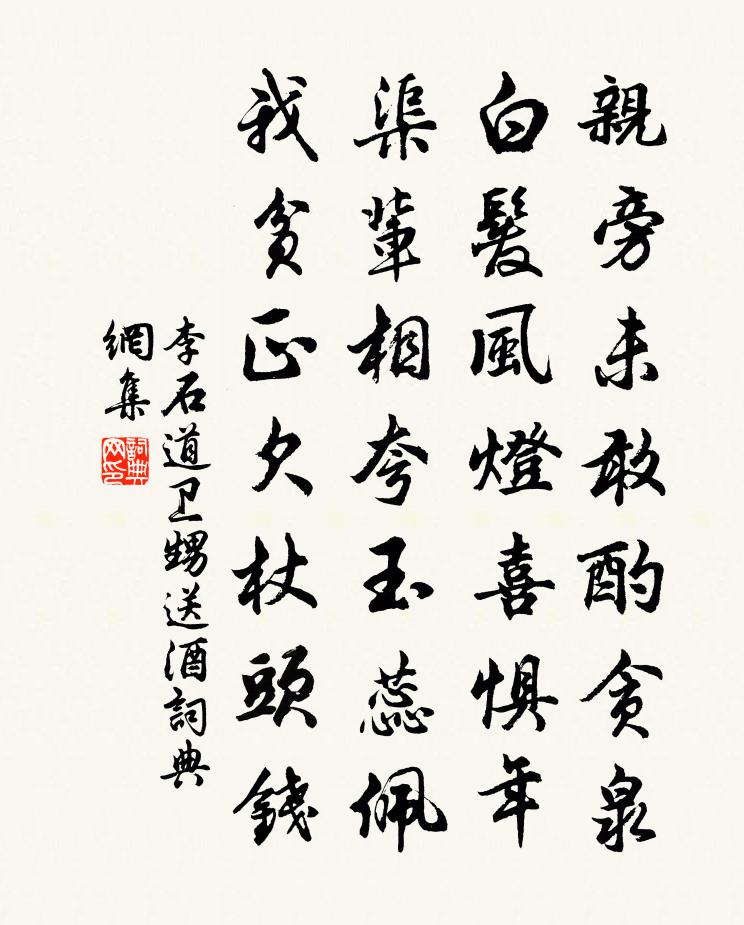 親旁未敢酌貪泉
白髮風燈喜懼年
渠輩相夸玉蕊佩
我貧正欠杖頭錢
李石道卫甥送酒詞典
網集
詞典
网印